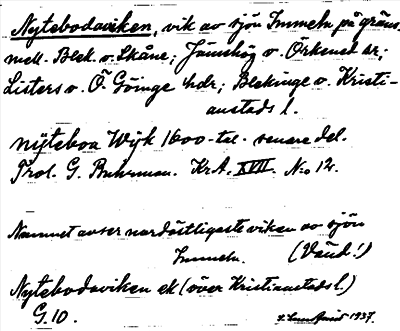 Nytebodaviken, vik av sjön Immeln på gräns.
mell. Blek. o. Skåne; Jämshög o. Örkened sr;
Listers o. Ö. Göinge hdr; Blekinge o. Kristi-
anstads l.
nÿteboa Wijk 1600-tal. senare del.
Prol. G. Buhrman. Kr.A. XVII. No 12.
Namnet avser nordöstligaste viken av sjön
Immeln. (Vänd!)
Nytebodaviken ek (över Kristianstads l.)
G.10. 1937.